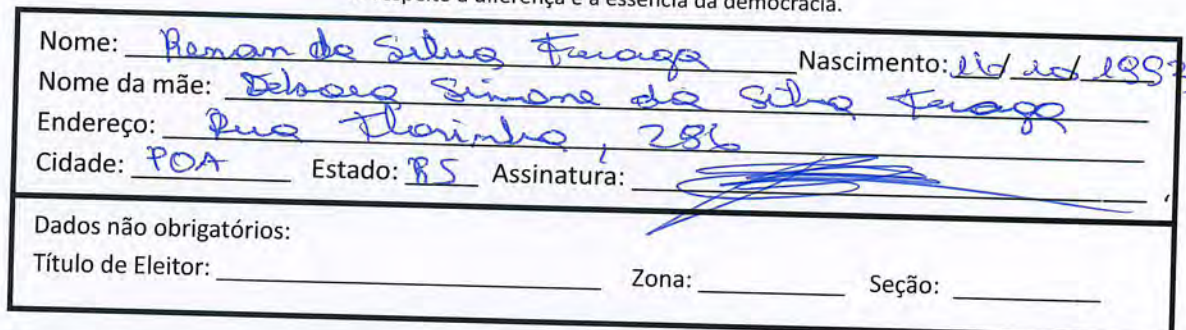 a diferença é a essência da democracia.
Nome: Renan da Silva Nascimento: 199
Nome da mãe: Simone da Silva
Endereço: Rua 286
Cidade: POA Estado: RS Assinatura:
Dados não obrigatórios:
Título de Eleitor: Zona: Seção: